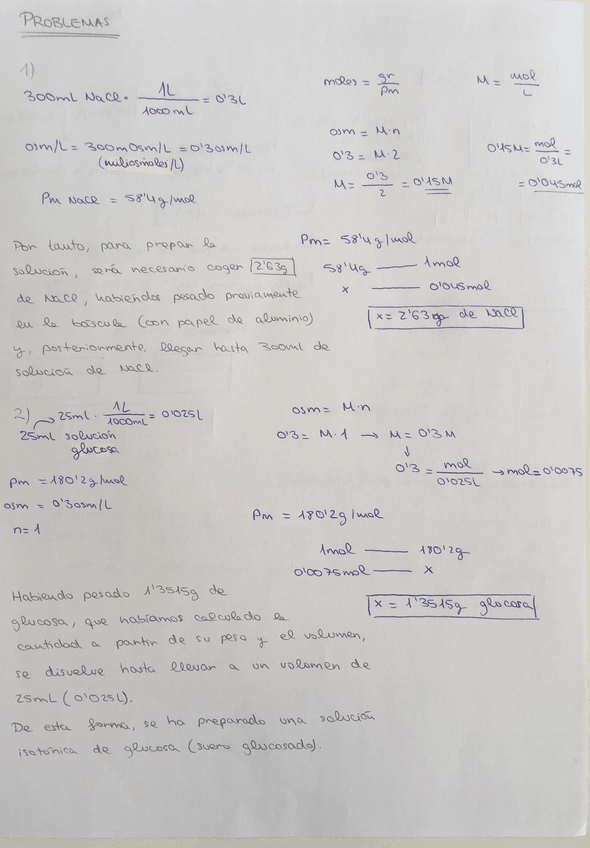 PROBLEMAS
1)
300mL NaCl · 1L / 1000mL = 0'3L
moles = gr / Pm
M = mol / L
osm/L = 300mOsm/L = 0'3osm/L
(miliosmoles/L)
osm = M·n
0'3 = M·2
M = 0'3 / 2 = 0'15M
0'15M = mol / 0'3L =
= 0'045mol
Pm NaCl = 58'4g/mol
Por tanto, para prepar la
solución, será necesario coger 2'63g
de NaCl, habiendos pesado previamente
en la báscula (con papel de aluminio)
y, posteriormente, llegar hasta 300ml de
solución de NaCl.
Pm = 58'4g/mol
58'4g —— 1mol
x —— 0'045mol
x = 2'63g de NaCl
2)
25mL · 1L / 1000mL = 0'025L
25mL solución
glucosa
osm = M·n
0'3 = M·1 → M = 0'3M
↓
0'3 = mol / 0'025L → mol = 0'0075
Pm = 180'2g/mol
osm = 0'3osm/L
n=1
Pm = 180'2g/mol
1mol —— 180'2g
0'0075mol —— x
x = 1'3515g glucosa
Habiendo pesado 1'3515g de
glucosa, que habíamos calculado la
cantidad a partir de su peso y el volumen,
se disuelve hasta llevar a un volumen de
25mL (0'025L).
De esta forma, se ha preparado una solución
isotónica de glucosa (suero glucosado).